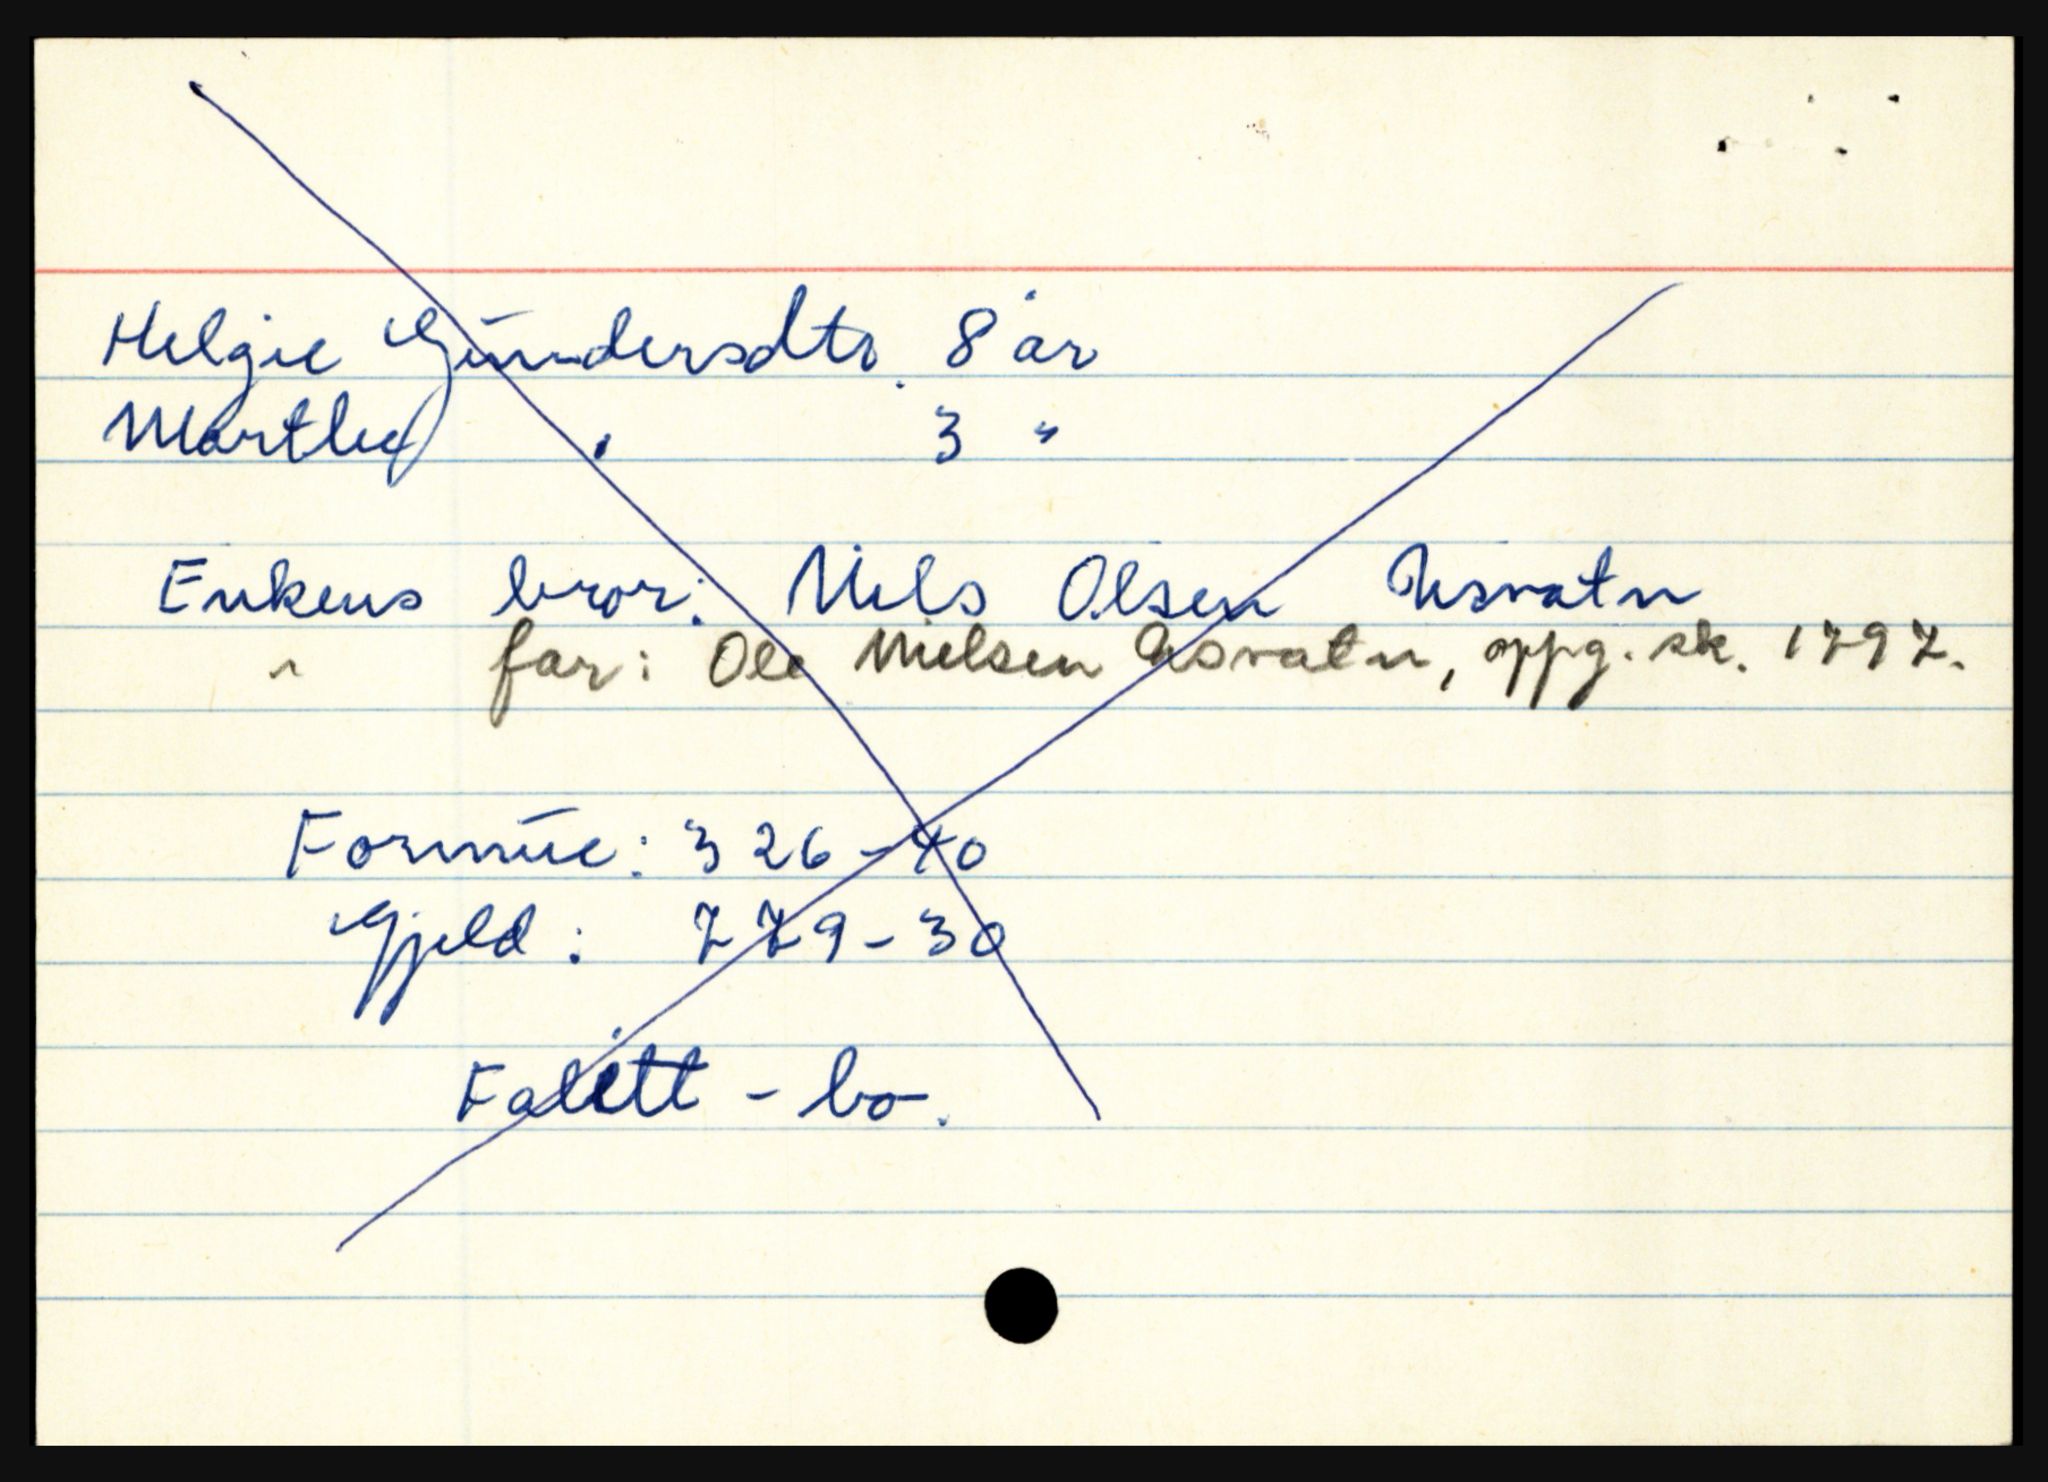 Helgie Gundersdtr. 8 år
Marthe " 3 "
Enkens bror: Nils Olsen Usvatn
" far: Ole Nielsen Usvatn, oppg. sk. 1797.
Formue: 326-40
Gjeld: 779-30
Falitt-bo.